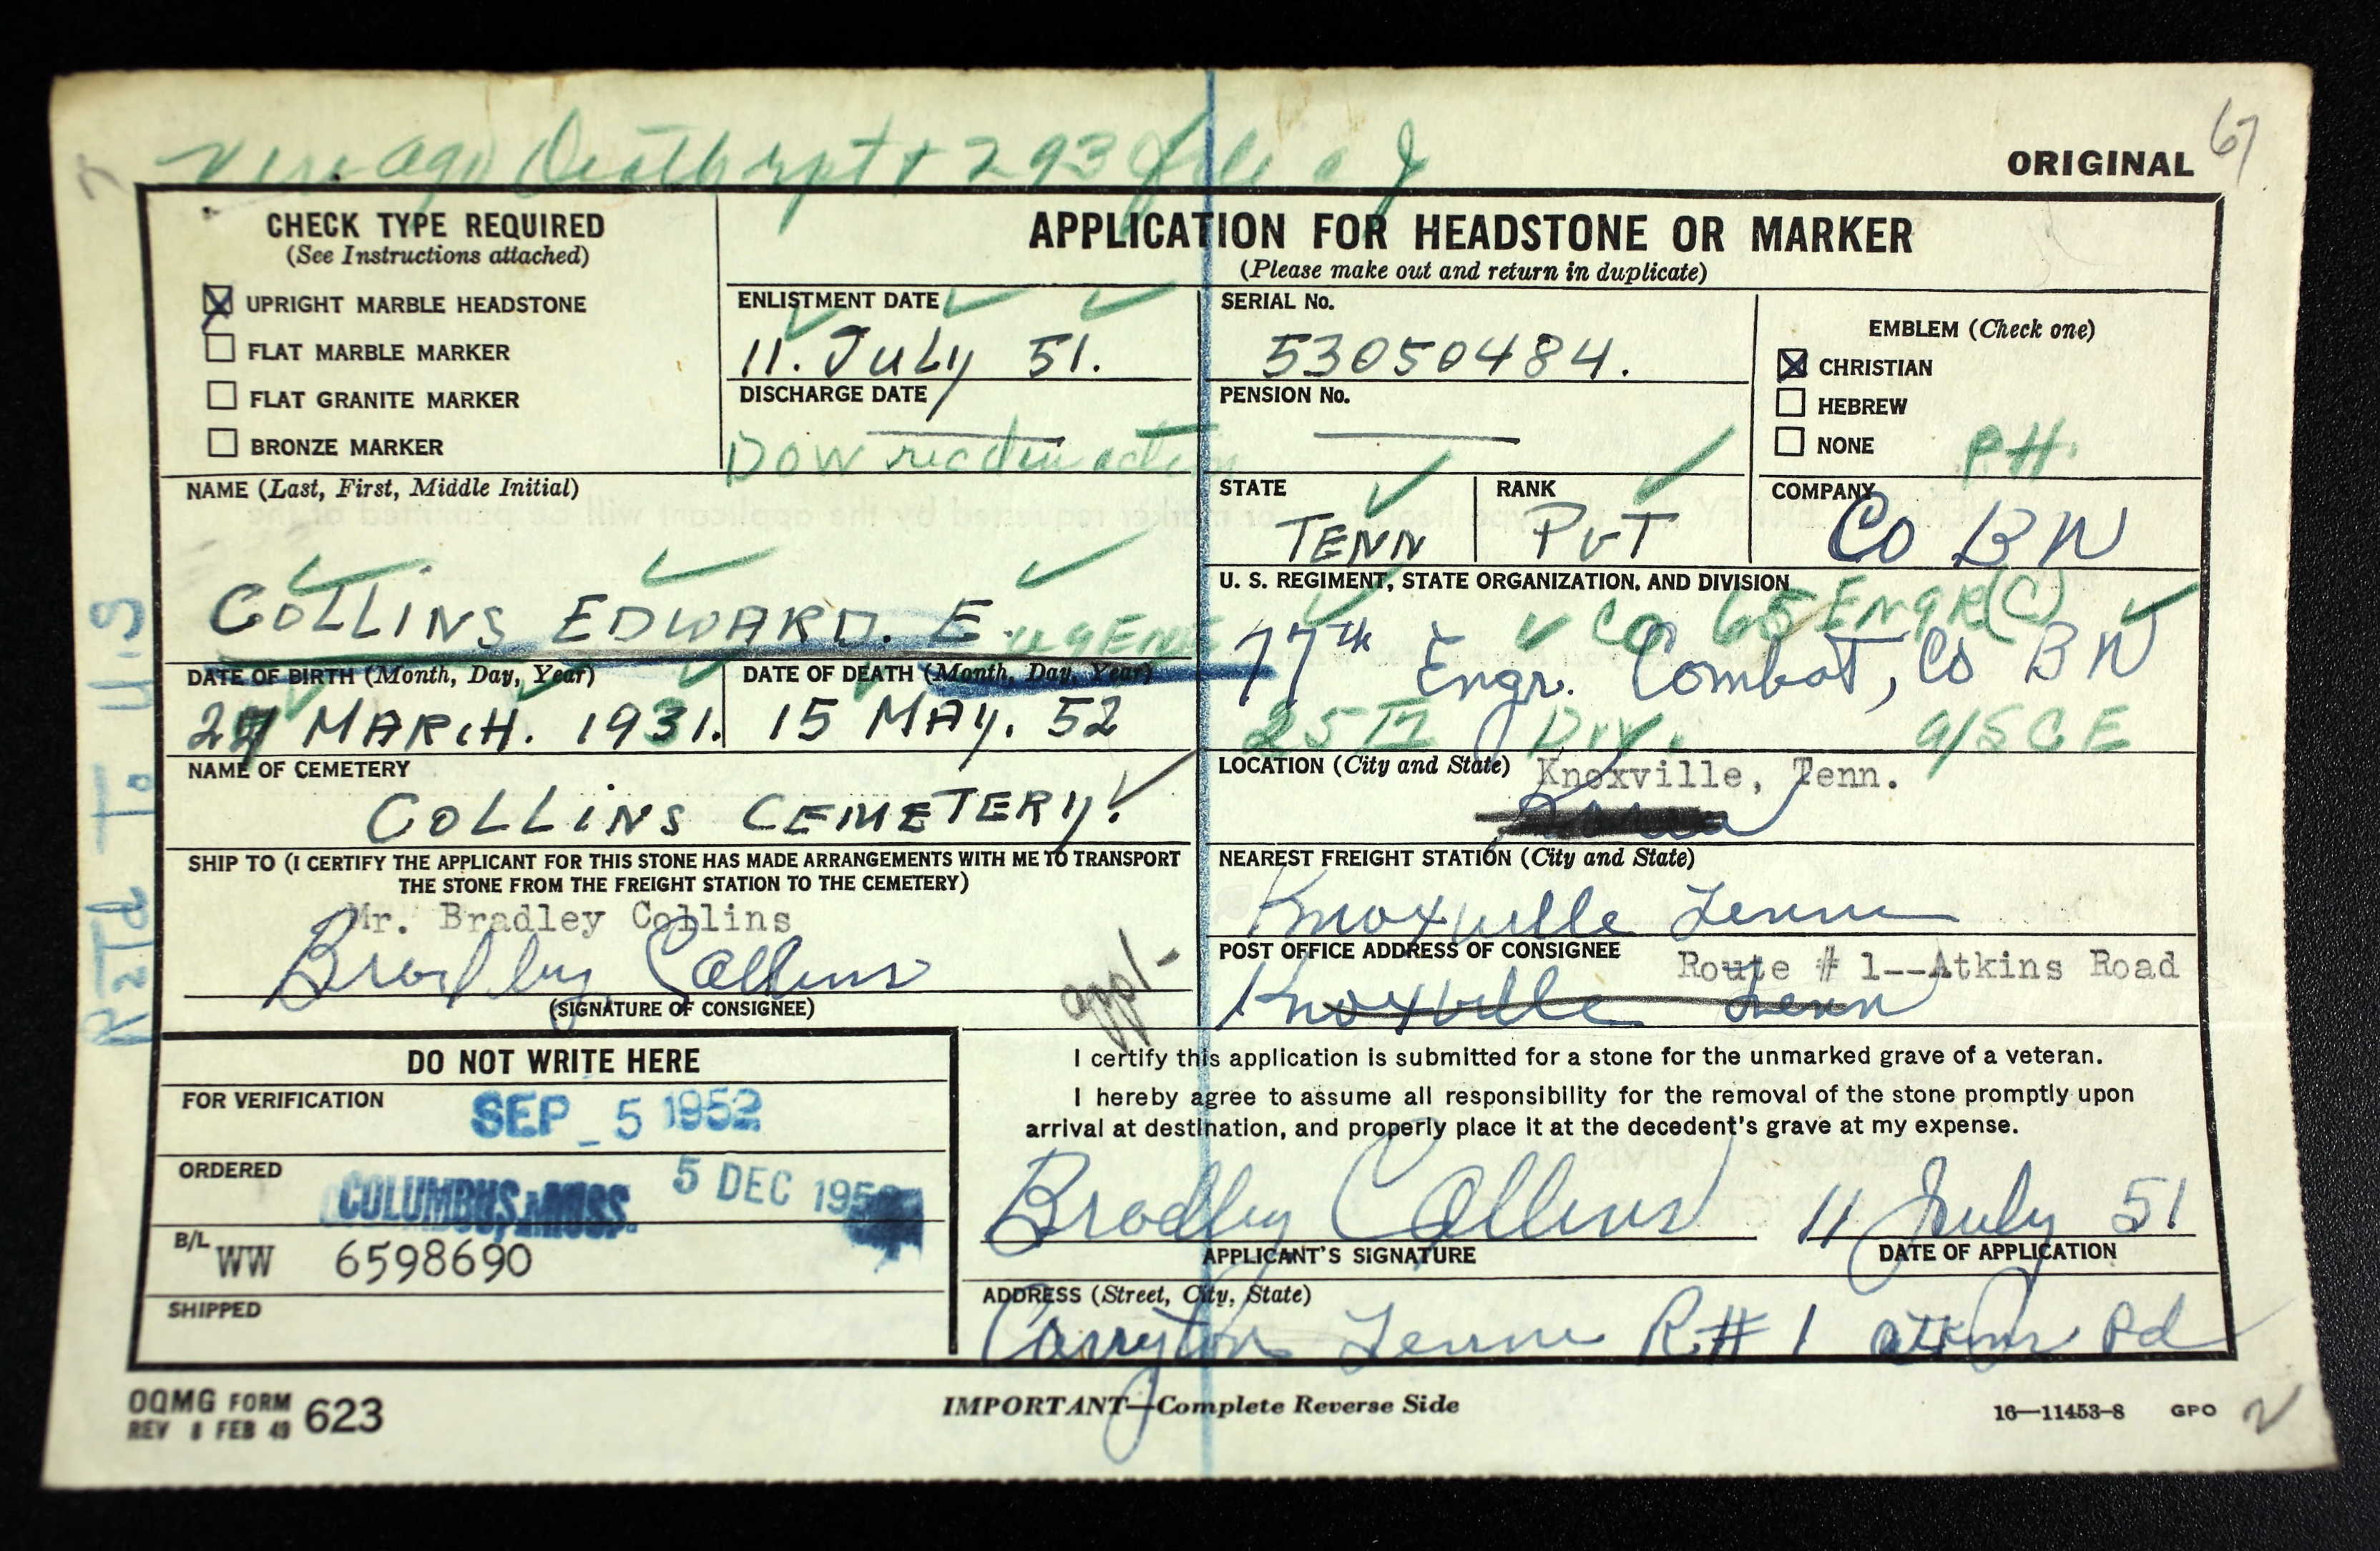 67
ORIGINAL
CHECK TYPE REQUIRED
(See Instructions attached)
☒ UPRIGHT MARBLE HEADSTONE
☐ FLAT MARBLE MARKER
☐ FLAT GRANITE MARKER
☐ BRONZE MARKER
APPLICATION FOR HEADSTONE OR MARKER
(Please make out and return in duplicate)
ENLISTMENT DATE
11. JULY 51.
DISCHARGE DATE
DOW
SERIAL No.
53050484.
PENSION No.
EMBLEM (Check one)
☒ CHRISTIAN
☐ HEBREW
☐ NONE
P.H.
NAME (Last, First, Middle Initial)
COLLINS EDWARD. E.
STATE
TENN
RANK
PVT
COMPANY
Co BN
U. S. REGIMENT, STATE ORGANIZATION, AND DIVISION
Co 65 ENGR (C)
77th Engr. Combat, Co BN
25 Div.
DATE OF BIRTH (Month, Day, Year)
MARCH. 1931.
DATE OF DEATH (Month, Day, Year)
15 MAY. 52
NAME OF CEMETERY
COLLINS CEMETERY.
LOCATION (City and State)
Knoxville, Tenn.
SHIP TO (I CERTIFY THE APPLICANT FOR THIS STONE HAS MADE ARRANGEMENTS WITH ME TO TRANSPORT
THE STONE FROM THE FREIGHT STATION TO THE CEMETERY)
Mr. Bradley Collins
Bradley Collins
(SIGNATURE OF CONSIGNEE)
NEAREST FREIGHT STATION (City and State)
Knoxville Tenn
POST OFFICE ADDRESS OF CONSIGNEE
Route # 1--Atkins Road
Knoxville Tenn
DO NOT WRITE HERE
FOR VERIFICATION
SEP 5 1952
ORDERED
COLUMBUS, MISS.
5 DEC 195
B/L
WW 6598690
SHIPPED
I certify this application is submitted for a stone for the unmarked grave of a veteran.
I hereby agree to assume all responsibility for the removal of the stone promptly upon
arrival at destination, and properly place it at the decedent's grave at my expense.
Bradley Collins 11 July 51
APPLICANT'S SIGNATURE
DATE OF APPLICATION
ADDRESS (Street, City, State)
Corryton Tenn R#1 Atkins Rd
OQMG FORM 623
REV 8 FEB 49
IMPORTANT—Complete Reverse Side
16—11453-8 GPO